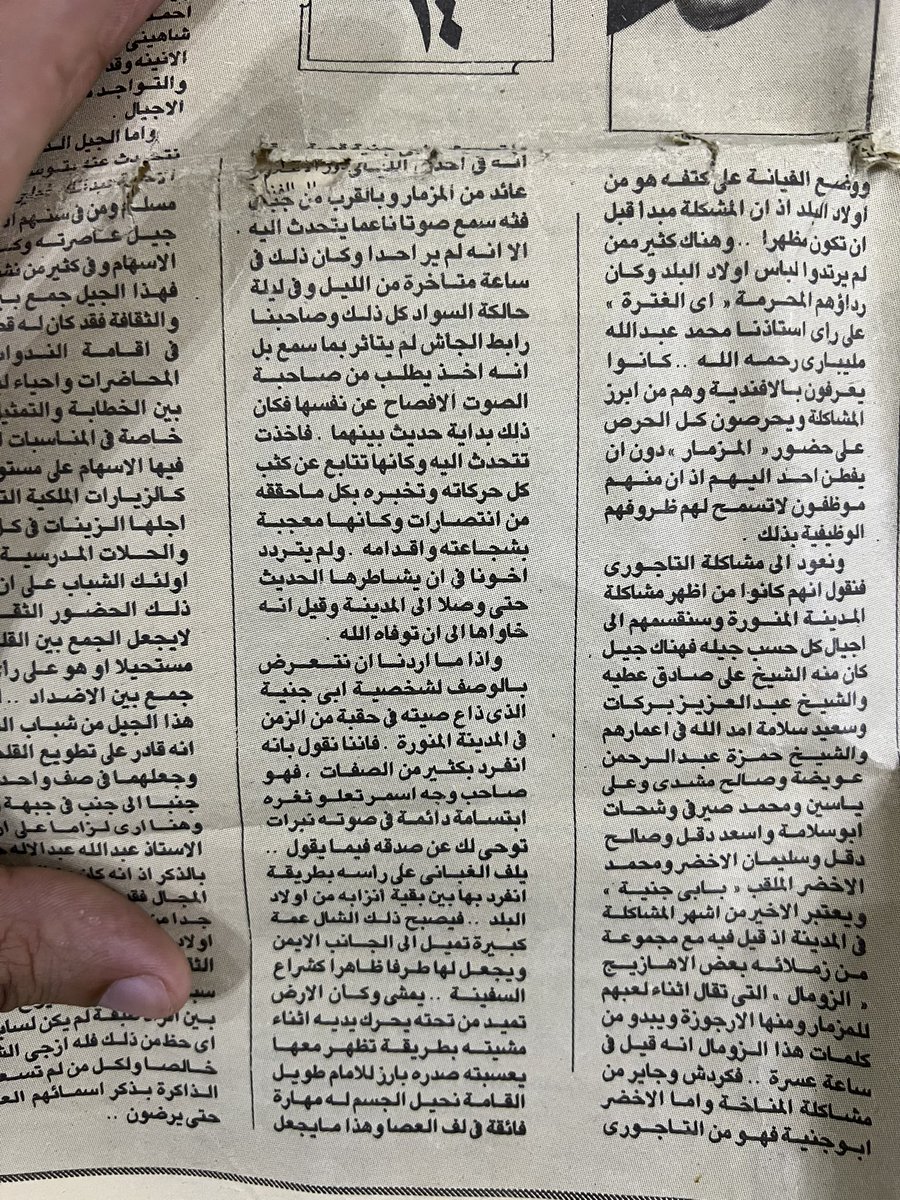 ١٤
ووضع الغبانة على كتفه هو من
أولاد البلد اذ ان المشكلة مبدا قبل
ان تكون مظهرا . . وهناك كثير ممن
لم يرتدوا لباس اولاد البلد وكان
رداؤهم المحرمة « اى الغترة »
على راى استاذنا محمد عبد الله
مليبارى رحمه الله . . كانوا
يعرفون بالافندية وهم من ابرز
المشاكلة ويحرصون كل الحرص
على حضور « المزمار » دون ان
يفطن احد اليهم اذ ان منهم
موظفون لاتسمح لهم ظروفهم
الوظيفية بذلك .
ونعود الى مشاكلة التاجورى
فنقول انهم كانوا من اظهر مشاكلة
المدينة المنورة وسنقسمهم الى
اجيال كل حسب جيله فهناك جيل
كان منه الشيخ على صادق عطيه
والشيخ عبد العزيز بركات
وسعيد سلامة امد الله فى اعمارهم
والشيخ حمزة عبد الرحمن
عويضة وصالح مشدى وعلى
ياسين ومحمد صيرفى وشحات
ابو سلامة واسعد دقل وصالح
دقل وسليمان الاخضر ومحمد
الاخضر الملقب « بابى جنية »
ويعتبر الاخير من اشهر المشاكلة
فى المدينة اذ قيل فيه مع مجموعة
من زملائه بعض الاهازيج
« الزومال » التى تقال اثناء لعبهم
للمزمار ومنها الارجوزة ويبدو من
كلمات هذا الزومال انه قيل فى
ساعة عسرة . . فكردش وجابر من
مشاكلة المناخة واما الاخضر
ابو جنية فهو من التاجورى
انه فى احدى
عائد من المزمار وبالقرب من
فئه سمع صوتا ناعما يتحدث اليه
الا انه لم ير احدا وكان ذلك فى
ساعة متاخرة من الليل وفى ليلة
حالكة السواد كل ذلك وصاحبنا
رابط الجاش لم يتاثر بما سمع بل
انه اخذ يطلب من صاحبة
الصوت الافصاح عن نفسها فكان
ذلك بداية حديث بينهما . فاخذت
تتحدث اليه وكانها تتابع عن كثب
كل حركاته وتخبره بكل ماحققه
من انتصارات وكانها معجبة
بشجاعته واقدامه . ولم يتردد
اخونا فى ان يشاطرها الحديث
حتى وصلا الى المدينة وقيل انه
خاواها الى ان توفاه الله .
واذا ما اردنا ان نتعرض
بالوصف لشخصية ابى جنية
الذى ذاع صيته فى حقبة من الزمن
فى المدينة المنورة . فاننا نقول بانه
انفرد بكثير من الصفات ، فهو
صاحب وجه اسمر تعلو ثغره
ابتسامة دائمة فى صوته نبرات
توحى لك عن صدقه فيما يقول . .
يلف الغبانى على راسه بطريقة
انفرد بها بين بقية انزابه من اولاد
البلد . . فيصبح ذلك الشال عمة
كبيرة تميل الى الجانب الايمن
ويجعل لها طرفا ظاهرا كشراع
السفينة . . يمشى وكان الارض
تميد من تحته يحرك يديه اثناء
مشيته بطريقة تظهر معها
يعسبته صدره بارز للامام طويل
القامة نحيل الجسم له مهارة
فائقة فى لف العصا وهذا مايجعل
احمد
شاهينى
الانيقه وقد
والتواجد
الاجيال .
واما الجيل
نتحدث عنه بتوسع
مسلم ومن فى سنهم
جيل عاصرته
الاسهام وفى كثير من
فهذا الجيل جمع
والثقافة فقد كان له
فى اقامة الندوات
المحاضرات واحياء
بين الخطابة والتمثيل
خاصة فى المناسبات
فيها الاسهام على مستوى
كالزيارات الملكية
اجلها الزينات فى كل
والحلات المدرسية
اولئك الشباب على ان
ذلك الحضور
لايجعل الجمع بين
مستحيلا او هو على
جمع بين الاضداد . .
هذا الجيل من شباب
انه قادر على تطويع
وجعلهما فى صف واحد
جنبا الى جنب فى جبهة
وهنا ارى لزاما على
الاستاذ عبد الله عبد الاله
بالذكر اذ انه كان
المجال فقد
جدا من
اولاد
لم يكن
اى حظ من ذلك فله ازجى
خالصا ولكل من لم
الذاكرة بذكر اسمائهم
حتى يرضون . .